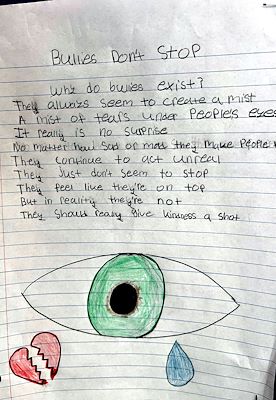 Bullies Don't STOP
Why do bullies exist?
They always seem to create a mist
A mist of tears under people's eyes
It really is no surprise
No matter how sad or mad they make people
They continue to act unreal
They just don't seem to stop
They feel like they're on top
But in reality they're not
They should really give kindness a shot